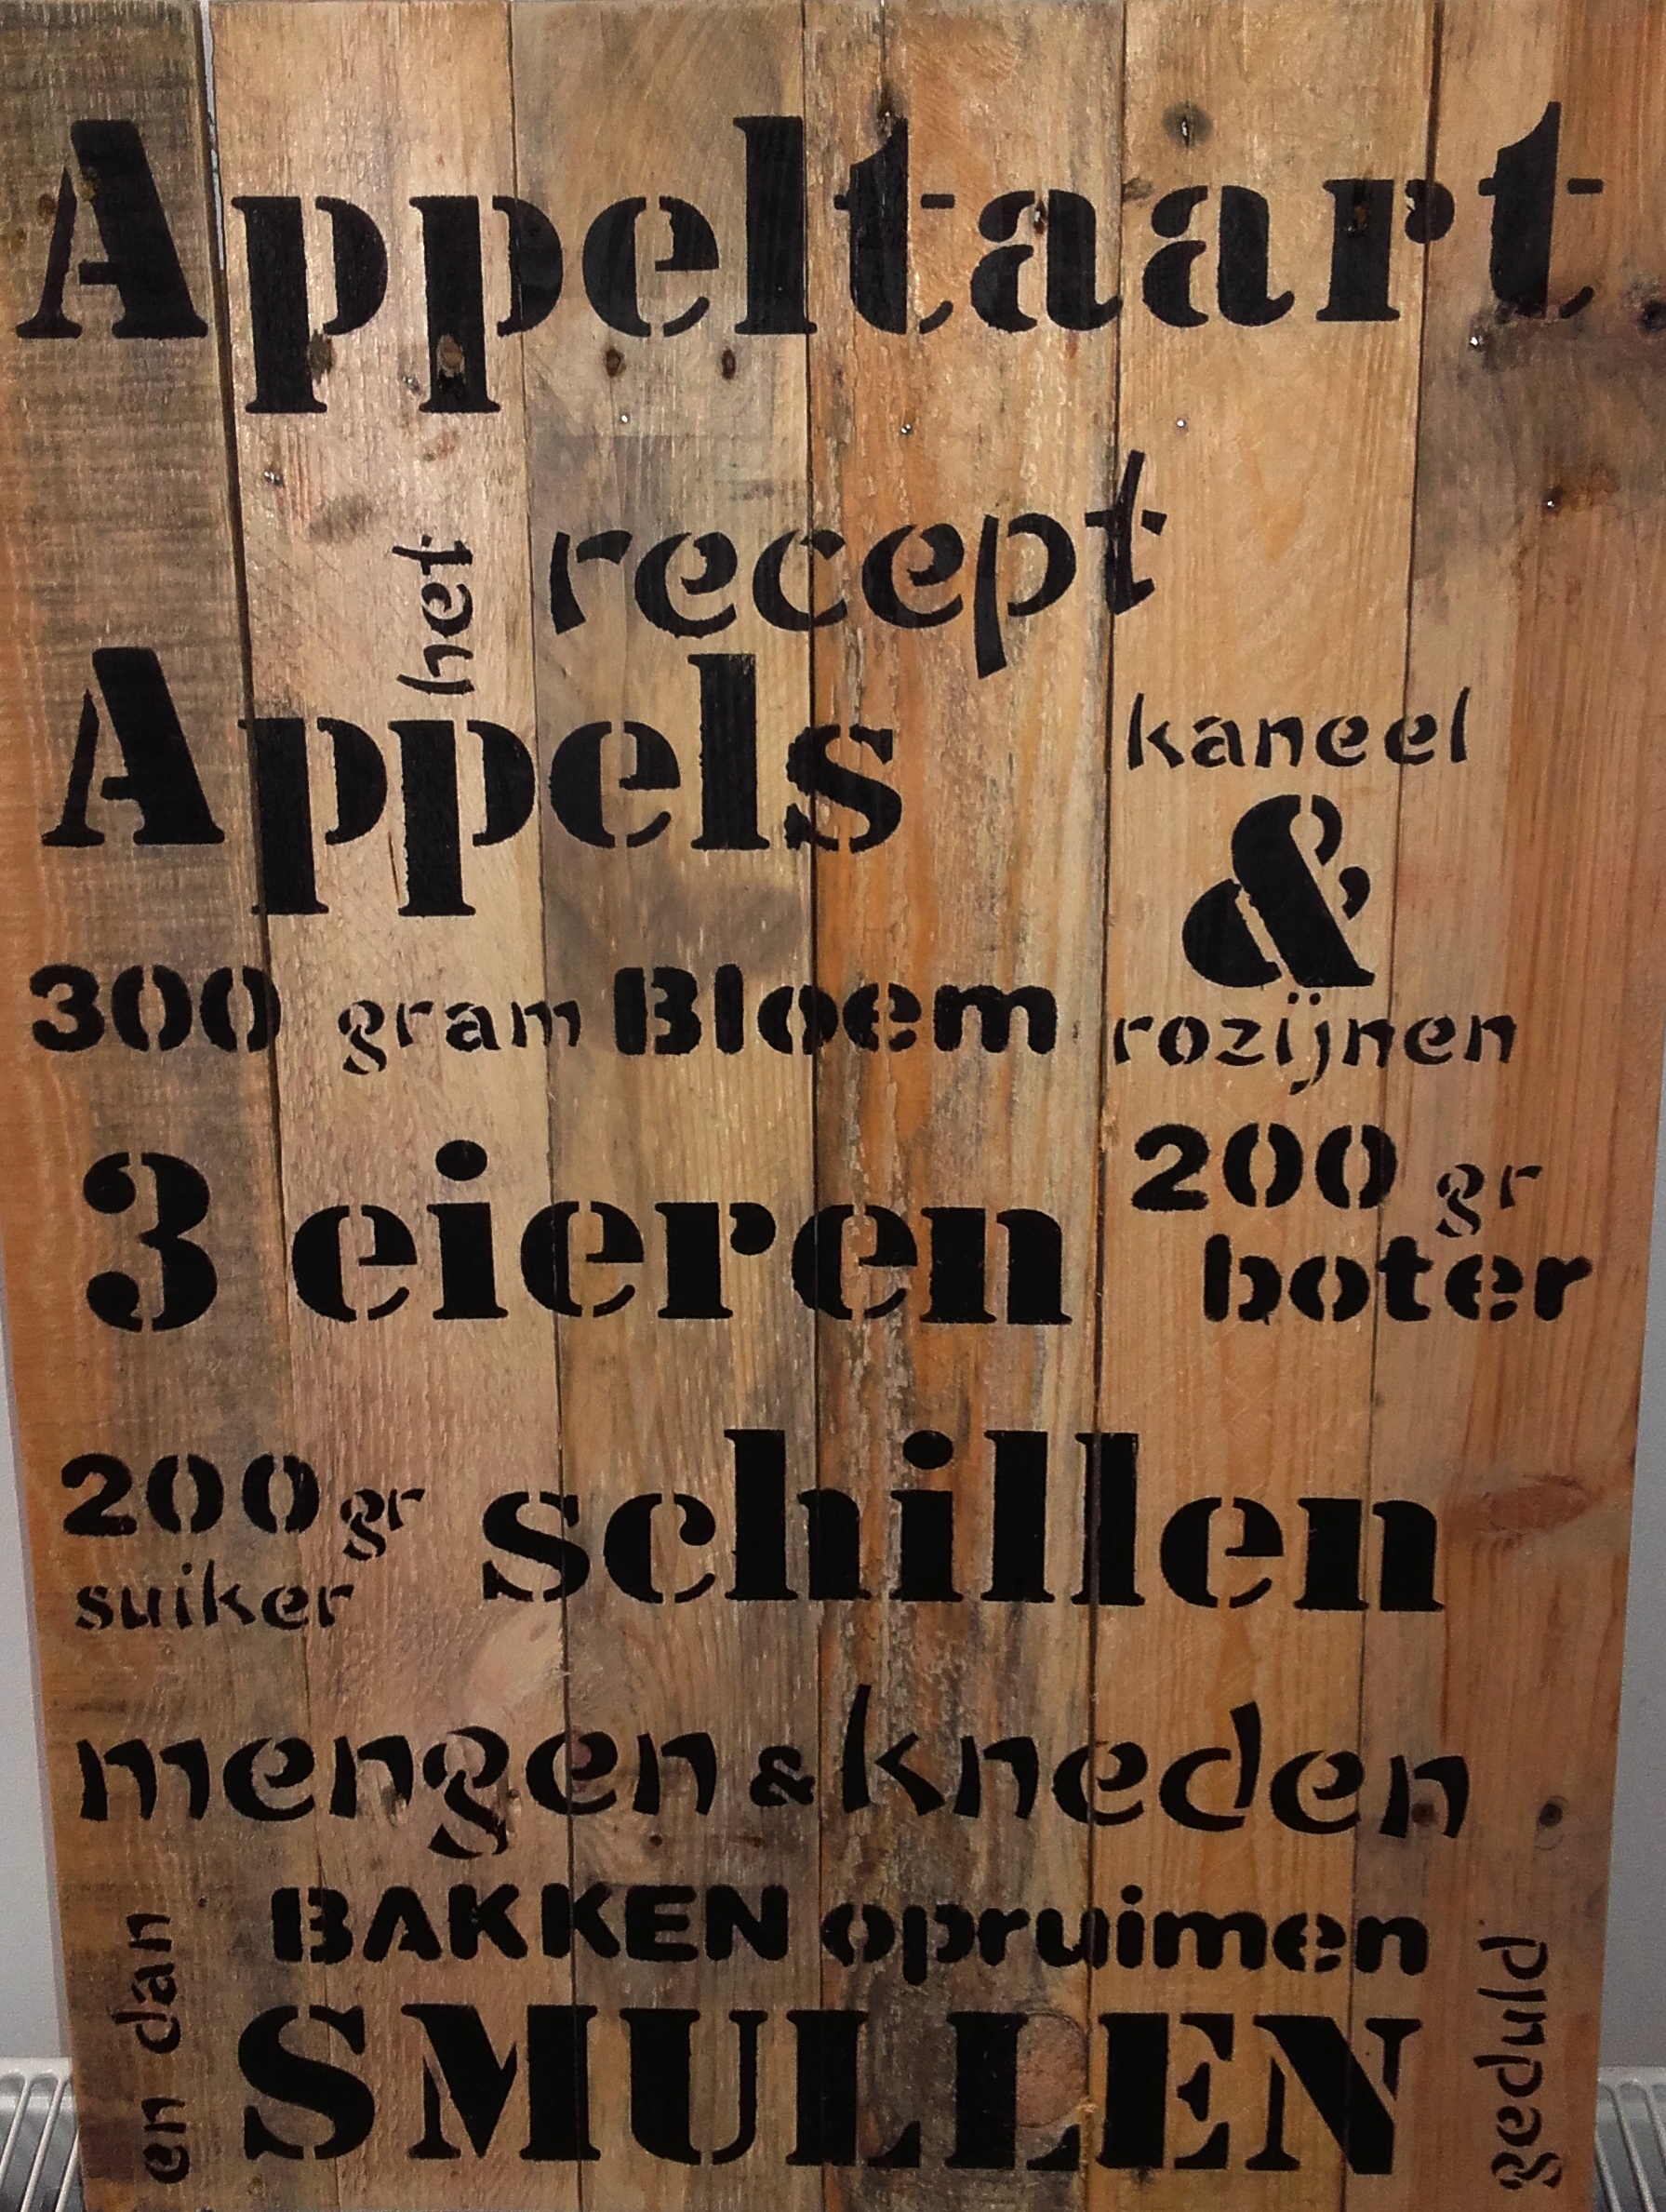 Appeltaart
het recept
Appels
kaneel
&
300 gram Bloem
rozijnen
3 eieren
200 gr
boter
200 gr
suiker
schillen
mengen & kneden
BAKKEN opruimen
en dan
SMULLEN
geduld